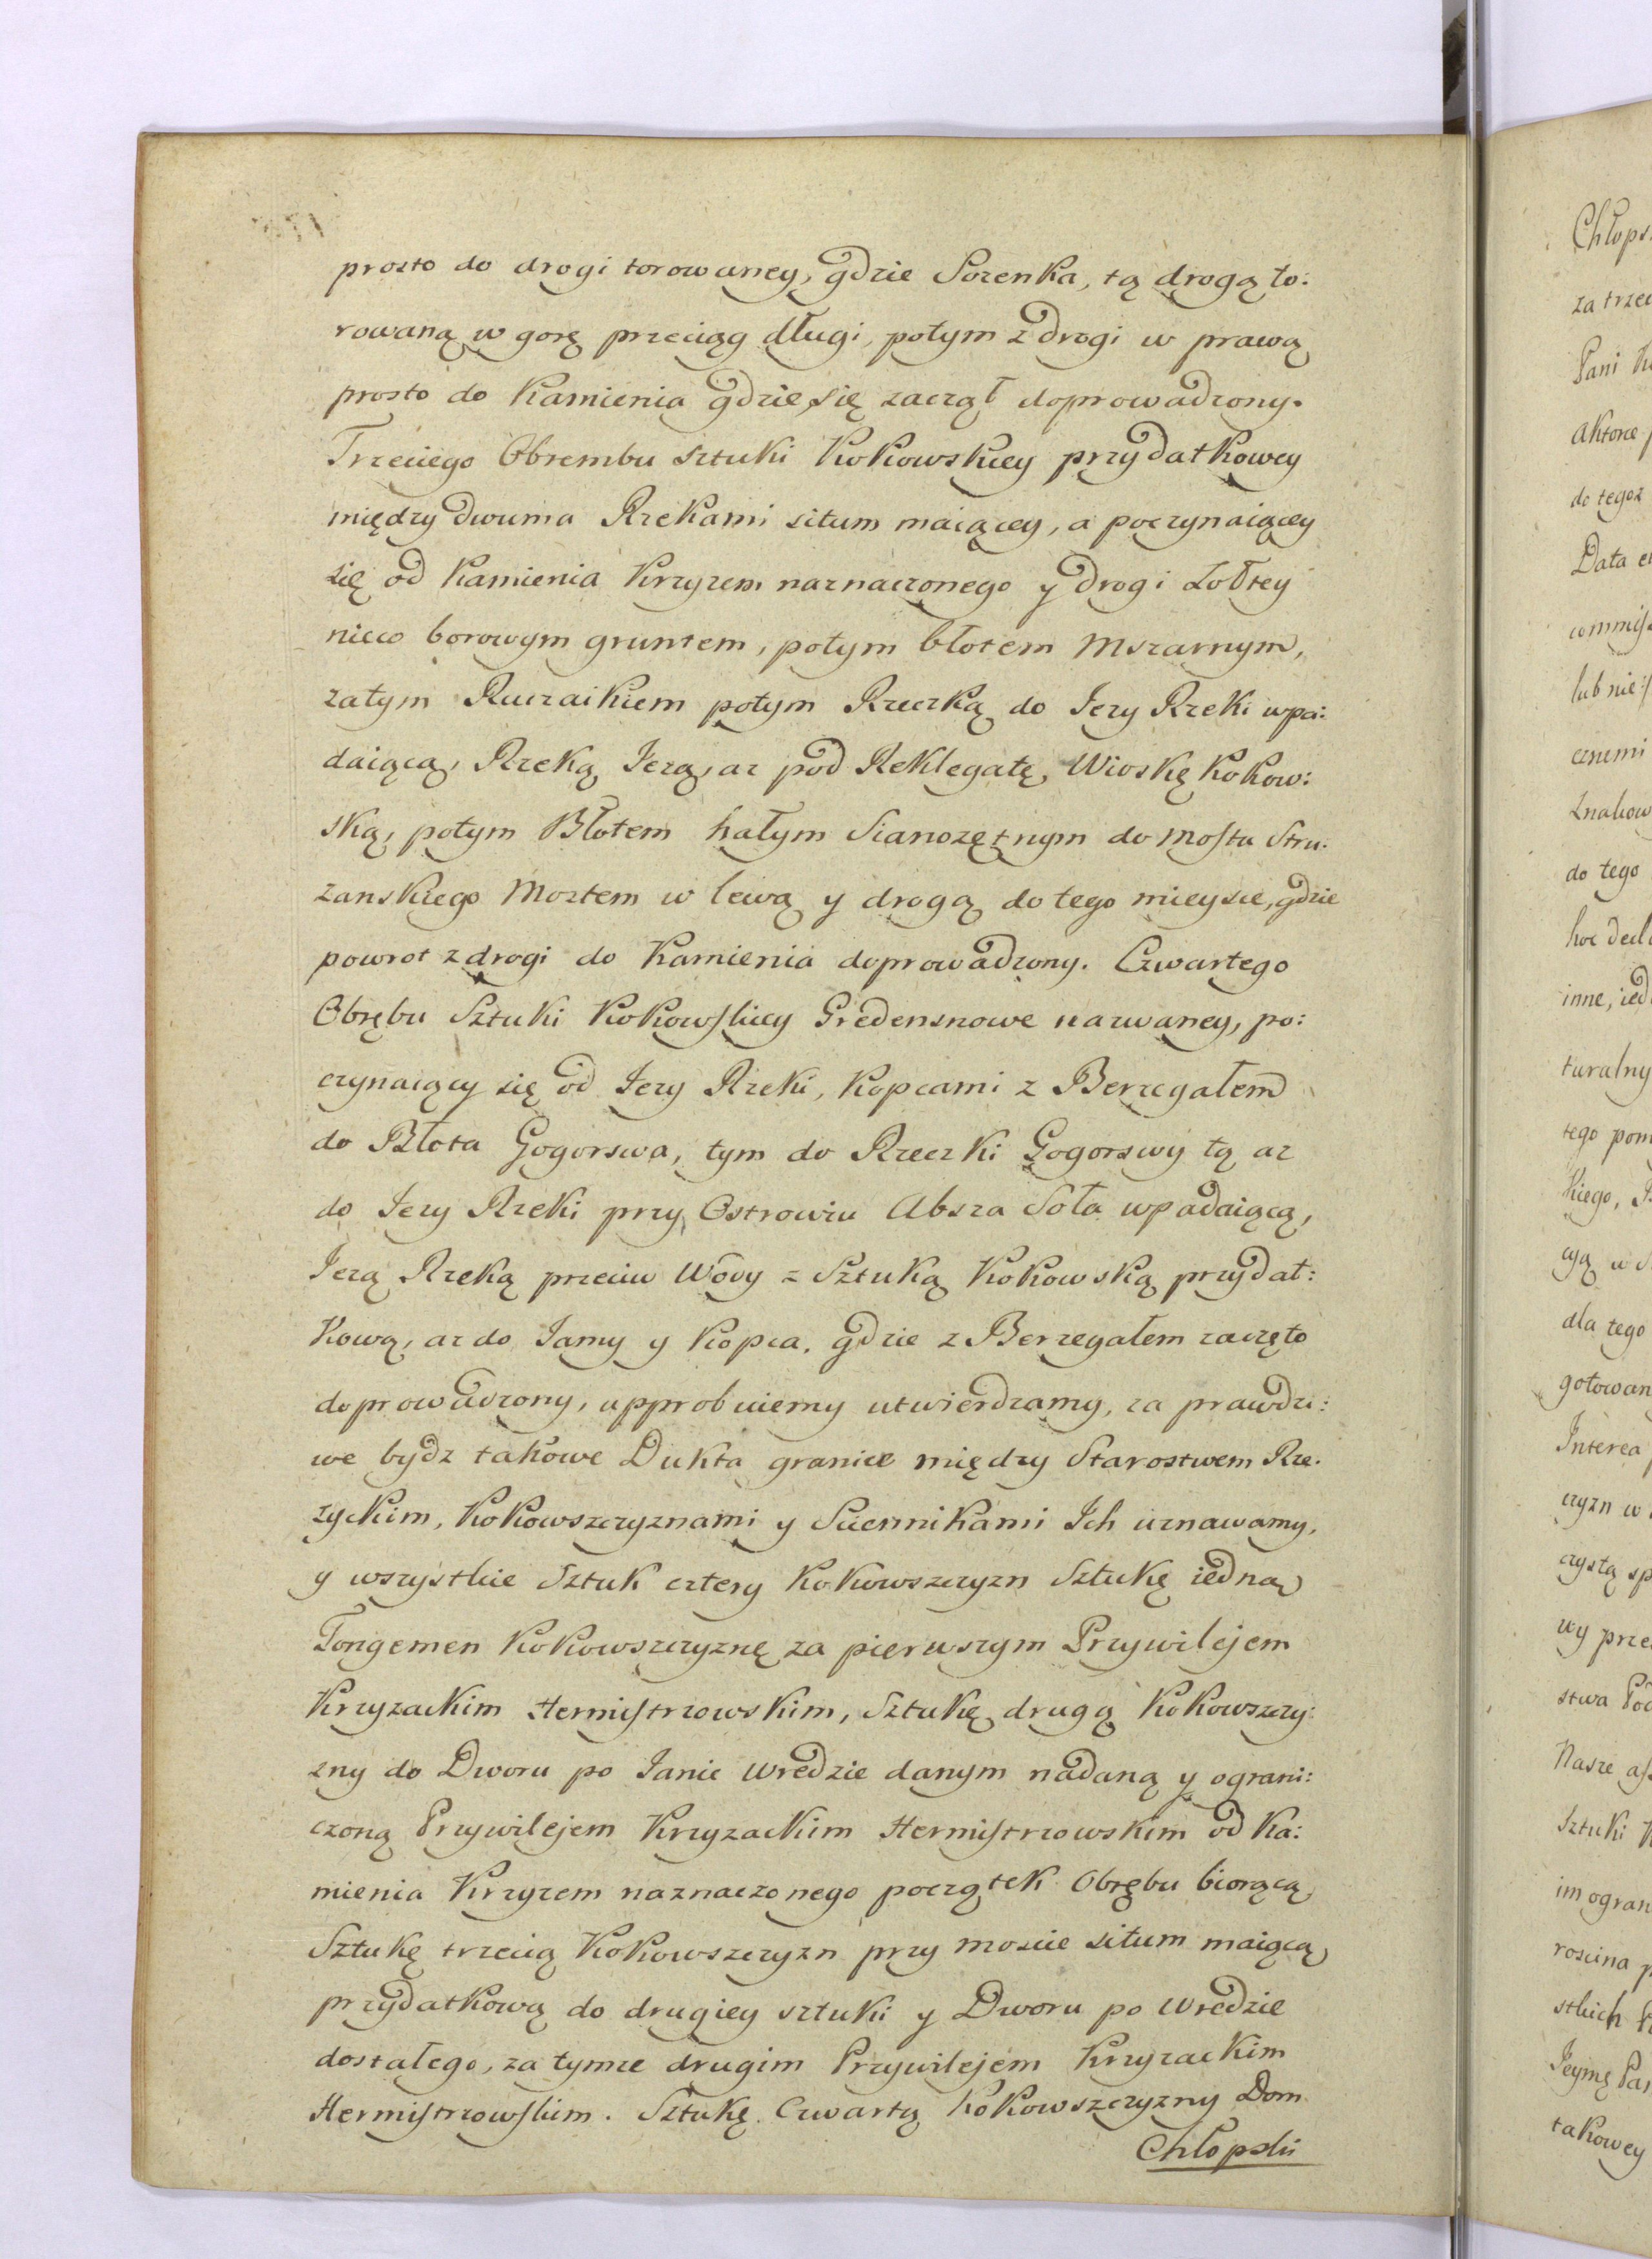 prosto do drogi torowaney, gdzie Sozenka, tą drogą to:
rowaną w gorę przeciąg długi, potym z drogi w prawą
prosto do Kamienia gdzie się zaczął doprowadzony.
Trzeciego Obrembu sztuki Kokowskiey przydatkowey
między dwuma Rzekami situm maiącey, a poczynaiącey
się od Kamienia Krzyzem naznaczonego y drogi
nieco borowym gruntem, potym błotem Mszarnym,
zatym Ruczaikiem potym Rzeczką do Jezy Rzeki wpa:
daiącą, Rzeką Jezą, az pod Reklegatę, Wioskę Kokow:
ską, potym Błotem hałym Sianozętnym do Mostu Stru:
zanskiego Mostem w lewą y drogą do tego mieysce, gdzie
powrot z drogi do Kamienia doprowadzony. Czwartego
Obrębu Sztuki Kokowskiey Gredensnowe nazwaney, po:
czynaiący się od Jezy Rzeki, Kopcami z Berzegałem
do Błota Gogorswa, tym do Rzeczki Gogorswy tą az
do Jezy Rzeki przy Ostrowiu Absza Soła wpadaiącą,
Jezą Rzeką przeciw Wody z Sztuką Kokowską przydat:
kową, az do Jamy y Kopca, gdzie z Berzegałem zaczęto
doprowadzony, approbuiemy utwierdzamy, za prawdzi:
we bydz takowe Dukta granice między Starostwem Rze:
zyckim, Kokowszczyznami y Sciennikami Ich uznawamy,
y wszystkie Sztuk cztery Kokowszczyzn Sztukę iedną
Tongemen Kokowszczyznę za pierwszym Przywilejem
Krzyzackim Hermistrzowskim, Sztukę drugą Kokowszczy:
zny do Dworu po Janie Wredzie danym nadaną y ograni:
czoną Przywilejem Krzyzackim Hermistrzowskim od Ka:
mienia Krzyzem naznaczonego początek Obrębu biorącą
Sztukę trzecią Kokowszczyzn przy moscie situm maiącą
przydatkową do drugiey sztuki y Dworu po Wredzie
dostałego, za tymze drugim Przywilejem Krzyzackim
Hermistrzowskim. Sztukę Czwartą Kokowszczyzny Dom
Chłopski
Chłops
za trzec
Pani
Aktorce
do tegoz
Data
commiss
lub nie
cznemi
Znakow
do tego
hoc decl
inne, ied
turalny
tego pom
kiego,
cyą w
dla tego
gotowan
Interea
czyzn w
czystą sp
wy prze
stwa
Nasze
Sztuki
im ogran
roscina
stkich
Jeymę Pan
takowey